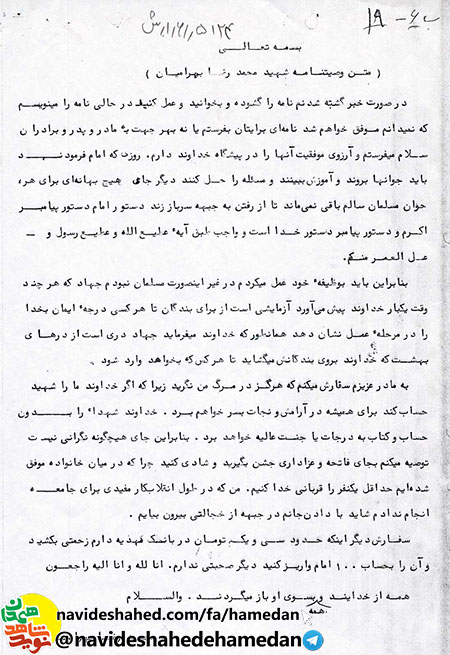 ۱۸-۶۰
بسمه تعالی
( متن وصیتنامه شهید محمد رضا بهرامیان )
در صورت خبر گشته شدنم نامه را گشوده و بخوانید و عمل کنید در حالی نامه را مینویسم
که نمیدانم موفق خواهم شد نامه‌ای برایتان بفرستم یا نه بهر جهت به مادر و پدر و برادران
سلام میفرستم و آرزوی موفقیت آنها را در پیشگاه خداوند دارم. روزی که امام فرمودنـــد
باید جوانها بروند و آموزش ببینند و مسئله را حل کنند دیگر جای هیچ بهانه‌ای برای هر،
جوان مسلمان سالم باقی نمی‌ماند تا از رفتن به جبهه سرباز زند دستور امام دستور پیامبر
اکرم و دستور پیامبر دستور خدا است و واجب طبق آیه علیع الله و علیع رسول و ــ
عل العمر منکم.
بنابراین باید بوظیفه خود عمل میکردم در غیر اینصورت مسلمان نبودم جهاد که هر چند
وقت یکبار خداوند پیش می‌آورد آزمایشی است از برای بندگان تا هر کسی درجه ایمان بخدا
را در مرحله عمل نشان دهد همانطور که خداوند میفرماید جهاد دری است از درهای
بهشت که خداوند بروی بندگانش میگشاید تا هر کس که بخواهد وارد شود
به مادر عزیزم سفارش میکنم که هرگز در مرگ من نگرید زیرا که اگر خداوند ما را شهید
حساب کند برای همیشه در آرامش و نجات بسر خواهم برد . خداوند شهدا را بـــدون
حساب و کتاب به درجات یا جنت عالیه خواهد برد . بنابراین جای هیچگونه نگرانی نیست
توصیه میکنم بجای فاتحه و عزاداری جشن بگیرید و شادی کنید چرا که در میان خانواده موفق
شده‌ایم حداقل یکنفر را قربانی خدا کنیم. من که در طول انقلاب کار مفیدی برای جامعـــه
انجام ندادم شاید با دادن جانم در جبهه از خجالتی بیرون بیایم .
سفارش دیگر اینکه حدود سی و یکم تومان در بانک فهدیه دارم زحمتی بکشید
و آن را بحساب ۱۰۰ امام واریز کنید دیگر صحبتی ندارم. انا لله و انا الیه راجعون
همه از خدایند و بسوی او باز میگردنـــد . والســـلام
همه
نوید شاهد
همدان
navideshahed.com/fa/hamedan
@navideshahedehamedan